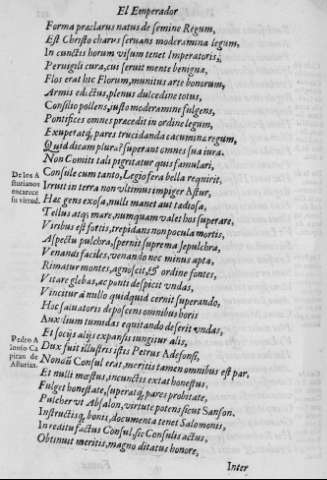 El Emperador
Forma præclarus natus de semine Regum,
Est Christo charus seruans moderamina legum,
In cunctis horum visum tenet Imperatoris,
Peruigili cura, cui seruit mente benigna,
Flos erat hic Florum, munitus arte bonorum,
Armis edoctus, plenus dulcedine totus,
Consilio pollens, iusto moderamine fulgens,
Pontifices omnes præcedit in ordine legum,
Exuperatq́, pares trucidanda cacumina regum,
Quid dicam plura? superant omnes sua iura.
Non Comiti tali pigritatur quis famulari,
Consule cum tanto, Legio fera bella requirit.
De los A
sturianos
encarece
su virtud.
Irruit in terra non vltimus impiger Astur,
Hæc gens exosa, nulli manet aut tædiosa,
Tellus atq; mare, numquam valet hos superare,
Viribus est fortis, trepidans non pocula mortis,
Aspectu pulchra, spernit suprema sepulchra,
Venandi facilis, venando nec minus apta,
Rimatur montes, agnoscit, & ordine fontes,
Vitare glebas, ac ponti despicit vndas,
Vincitur à nullo quidquid cernit superando,
Hoc saluatoris deposcens omnibus horis
Auxilium tumidas equitando deserit vndas,
Et socijs alijs expansis iungitur alis,
Pedro A
lonso Ca
pitan de
Asturias.
Dux fuit illustris istis Petrus Adefonsi,
Nondũ Consul erat, meritis tamen omnibus est par,
Et nulli mœstus, in cunctis extat honestus,
Fulget honestate, superatq́, pares probitate,
Pulcher vt Absalon, virtute potens sicut Sanson,
Instructusq, bonis, documenta tenet Salomonis,
In reditu factus Consul, sic Consulis actus,
Obtinuit meritis, magno ditatus honore,
Inter